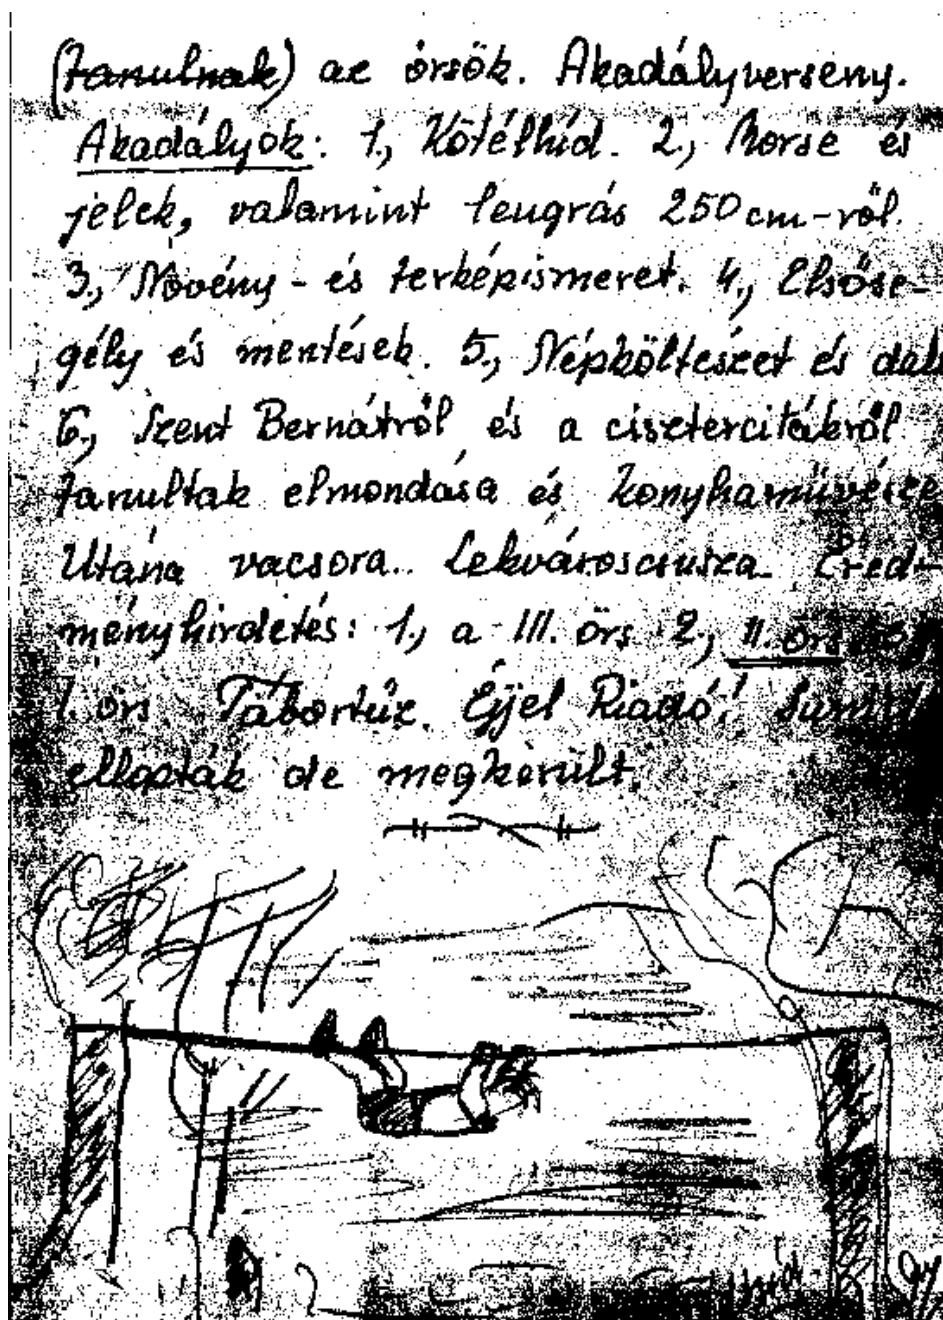 (tanulnak) az örsök. Akadályverseny.
Akadályok: 1., Kötélhíd. 2., Morse és
jelek, valamint leugrás 250 cm-ről.
3., Növény- és térképismeret. 4., Elsőse-
gély és mentések. 5., Népköltészet és
6., Szent Bernátról és a cisztercitákról
tanultak elmondása és
Utána vacsora.. Lekvároscsusza. Ered-
ményhirdetés: 1., a III. örs 2., II. örs
I. örs Tábortűz. Éjjel Riadó!
ellopták de megkerült.